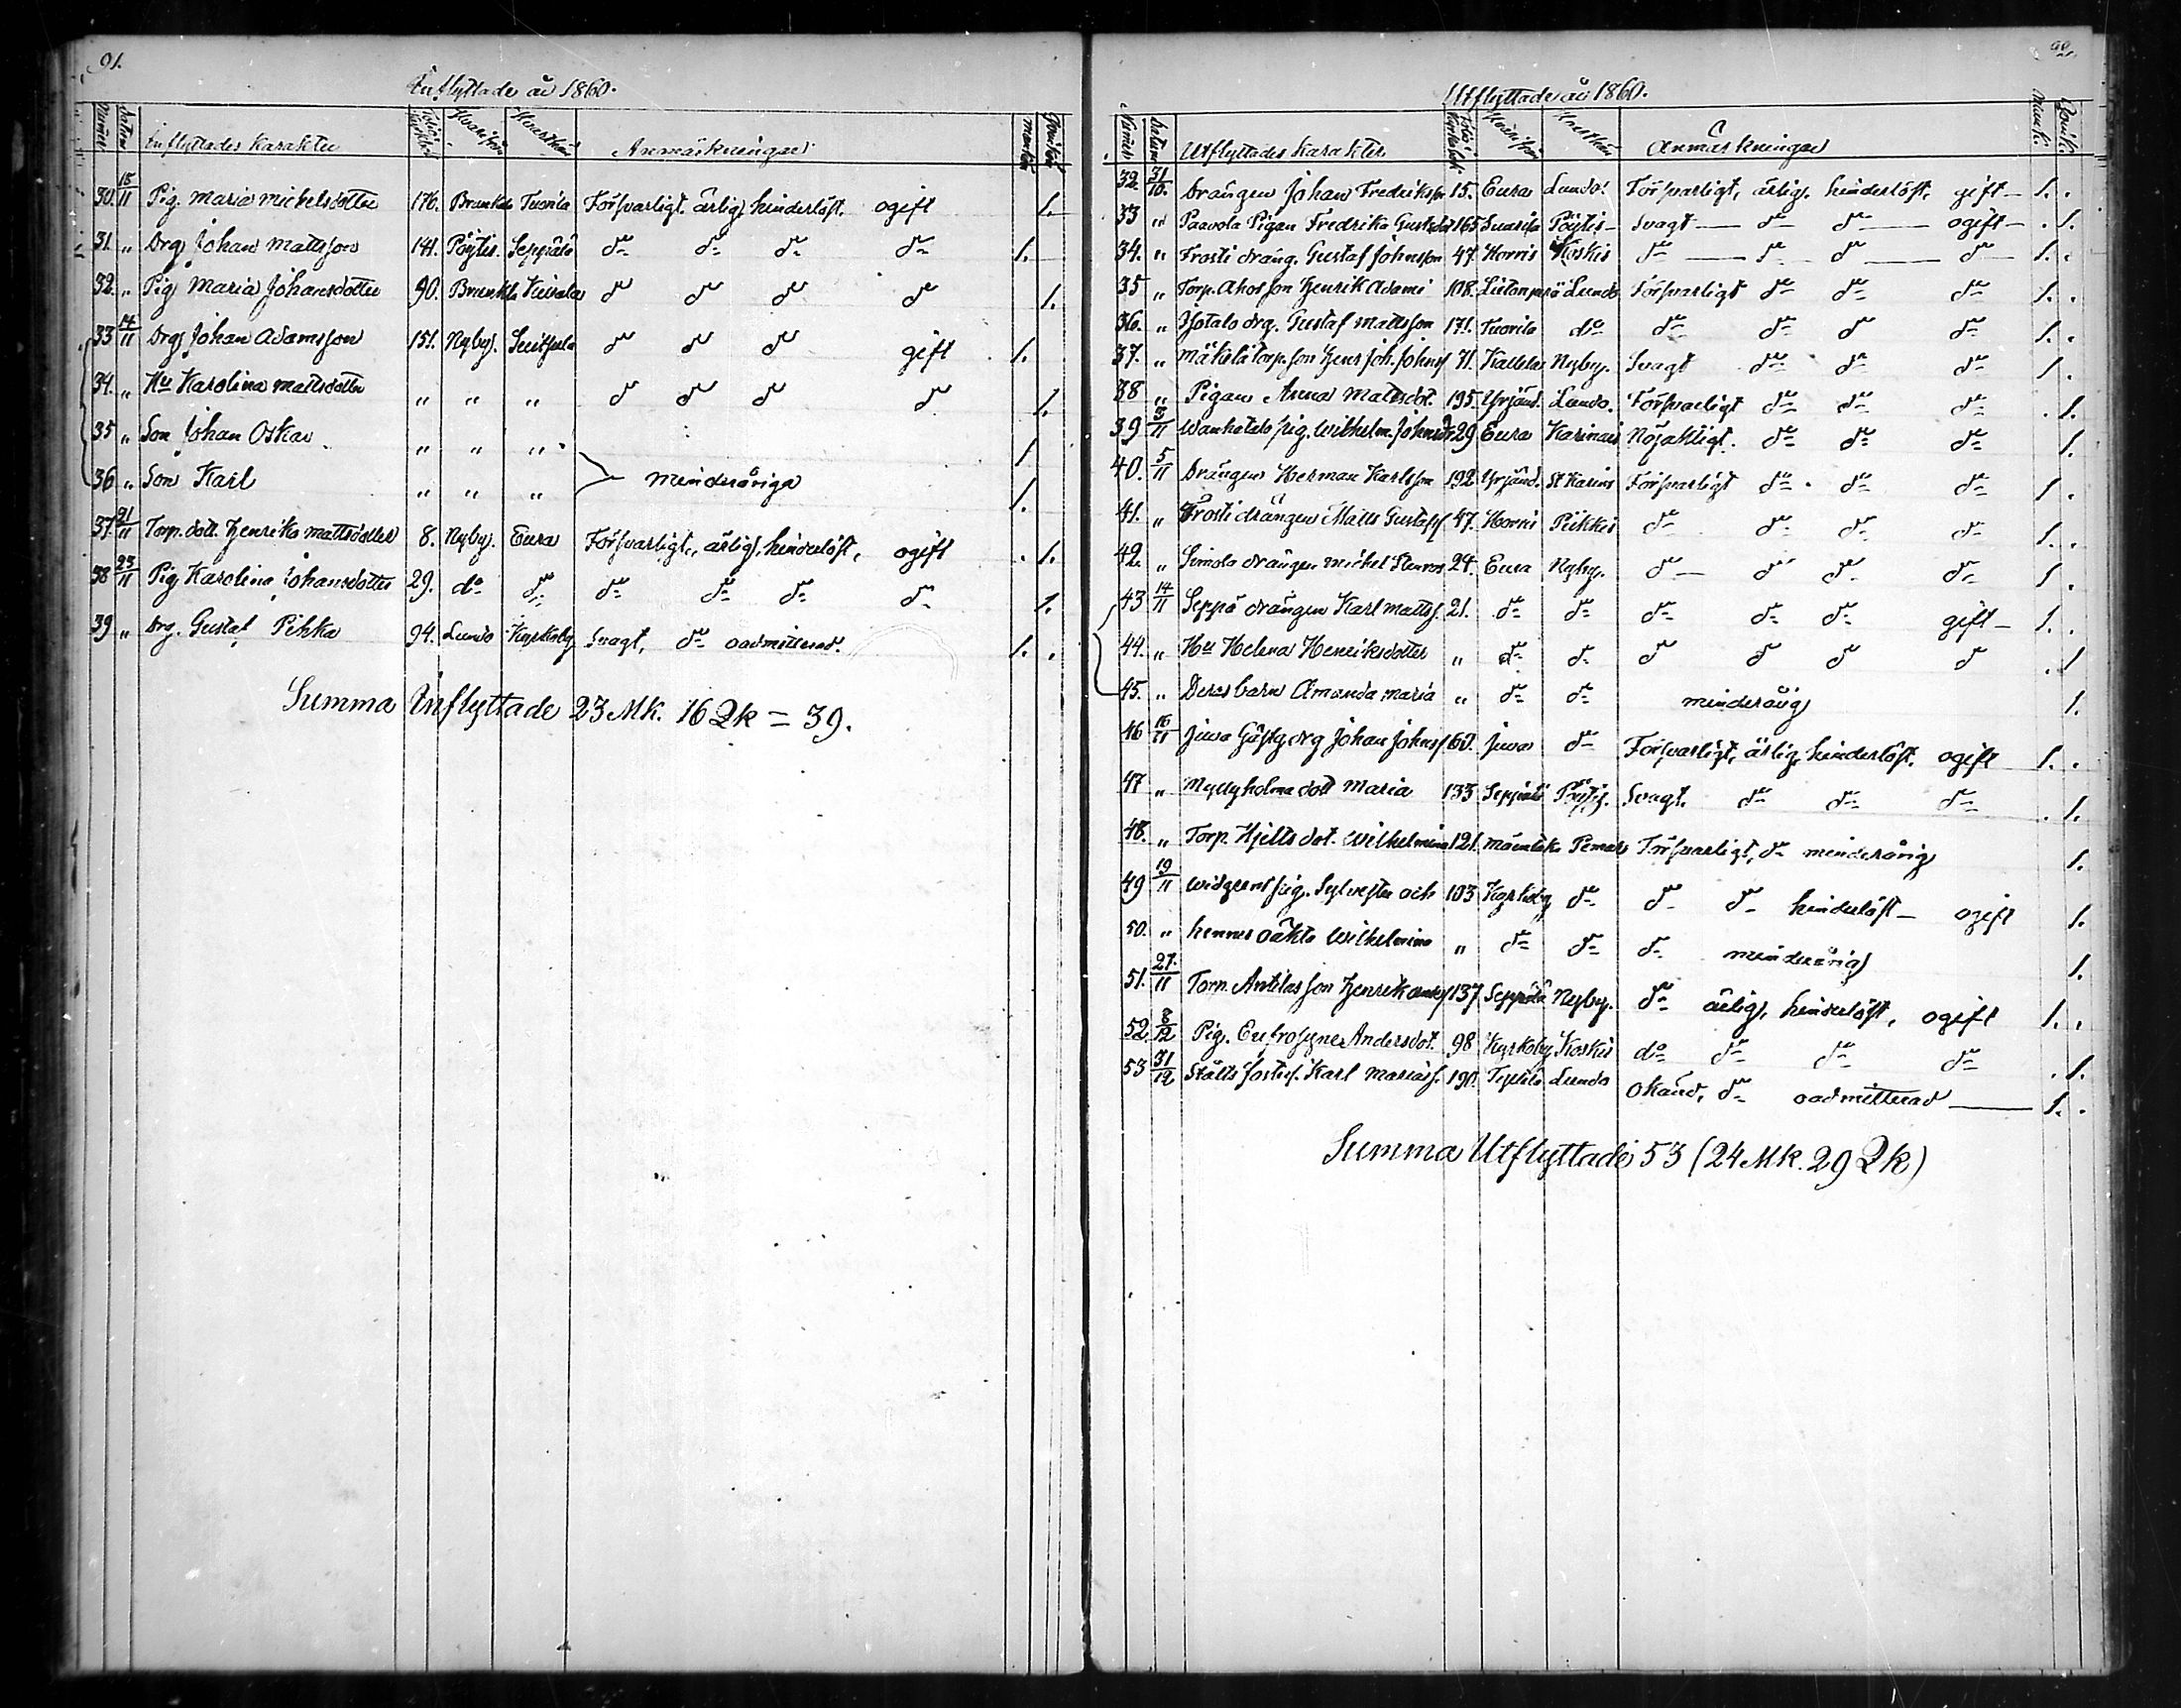 91.
Inflyttade år 1860.
Numer Datum Inflyttades Karakter Hvarifrån Hvarthän Anmärkningar mankön Qvinkön
30. 15/11 Pig. Maria Michelsdotter 176. Brunkla Tuorila Försvarligt. ärlig, hinderlöst. ogift 1.
31. " Drg Johan Mattsson 141. Pöytis. Seppälä dº dº dº dº 1.
32. " Pig Maria Johansdotter 90. Brunkla dº dº dº dº 1.
33 14/11 Drg Johan Adamsson 151. Nyby. dº dº dº gift 1.
34. " Hu Karolina Mattsdotter " " " dº dº dº dº 1.
35 " Son Johan Oskar " " " 1
36 " Son Karl " " " minderåriga 1.
37 21/11 Torp. dott. Henrika Mattsdotter 8. Nyby. Eura Försvarligt, ärlig, hinderlöst, ogift 1.
38 23/11 Pig Karolina Johansdotter 29. dº dº dº dº dº dº 1.
39 " Drg. Gustaf Pihka 94. Lundo Kyrkoby Svagt, dº oadmitterad. 1.
Summa Inflyttade 23 Mk. 16 Qk = 39.
92.
Utflyttade år 1860.
Numer Datum Utflyttades Karakter Hvarifrån Hvarthän Anmärkningar Mank. Qvink.
32. 31/10. Drängen Johan Fredriksson 15. Eura Lundo. Försvarligt, ärlig, hinderlöst, gift 1.
33 " Paavola Pigan Fredrika Gustafsdot 165 Suarila Pöytis Svagt dº dº ogift 1.
34. " Frosti dräng. Gustaf Johnsson 47. Horris Koskis dº dº dº dº 1.
35 " Torp. Ahos son Henrik Adami 108. Lundo Försvarligt dº dº dº 1.
36. " Isotalo drg. Gustaf Mattsson 171. Tuorila dº dº dº dº dº 1.
37. " Mäkilä torp. son Henr Joh. Johns 71. Kallela Nyby. Svagt dº dº dº 1.
38 " Pigan Anna Mattsdot. 195. Yrjänä. Lundo. Försvarligt dº dº dº 1.
39 3/11 Wanhatalo pig. Wilhelm. Johnsd 29 Eura Karinais Nöjaktigt. dº dº dº 1.
40. 5/11 Drängen Herman Karlsson 192 Yrjänä. St Karins Försvarligt dº dº dº 1.
41. " Frosti drängen Matts Gustafs 47. Horris Pikkis dº dº dº dº 1.
42. " Simola drängen Michel Stenros 24. Eura Nyby. dº dº dº dº 1.
43 14/11 Seppä drängen Karl Matts. 21. dº dº dº dº dº gift 1.
44. " Hu Helena Henriksdotter " dº dº dº dº dº dº 1
45. " Deras barn Amanda Maria " dº dº minderårig 1.
46 16/11 Juva Gustg drg Johan Johns 60. Juva dº Försvarligt, ärlig, hinderlöst. ogift 1.
47 " Myllyholma dott Maria 133 Seppälä Pöytis. Svagt. dº dº dº 1.
48. " Torp. Hjelts dot. Wilhelmina 121. Pemar Försvarligt, dº minderårig 1.
49 19/11 Widgrens pig. Sylvester och 103 Kyrkoby dº dº dº hinderlöst ogift 1.
50. " hennes oäkta Wilhelmina " dº dº dº minderårig 1.
51. 27/11 Torp. Antilas son Henrik 137 Seppälä Nyby. dº ärlig, hinderlöst, ogift 1.
52 8/12 Pig. Eufrosyne Andersdot. 98 Kyrkoby Koskis dº dº dº dº 1.
53 31/12 Ståhls fosters. Karl Marias. 190. Lundo Okänd, dº oadmitterad 1.
Summa Utflyttade 53 (24 Mk. 29 Qk)